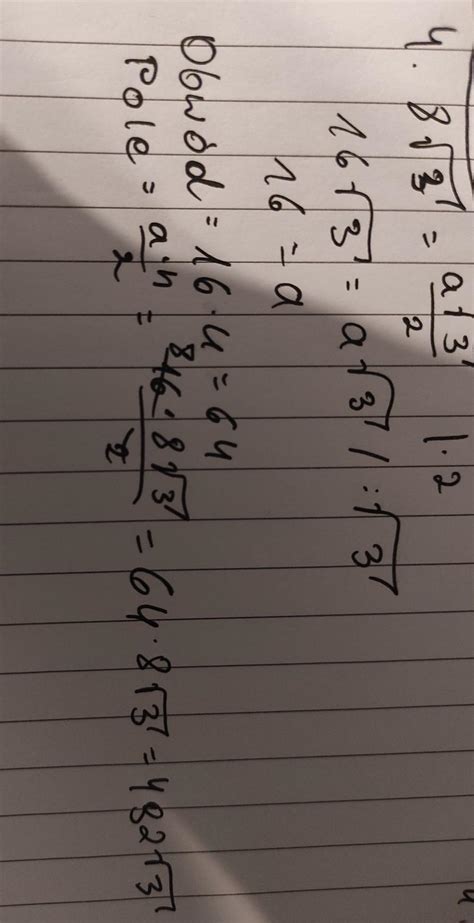 4. 8√3 = a√3/2 |·2
16√3 = a√3 /:√3
16 = a
Obwód = 16·4 = 64
Pole = a·h/2 = 8 16·8√3/2 = 64·8√3 = 482√3